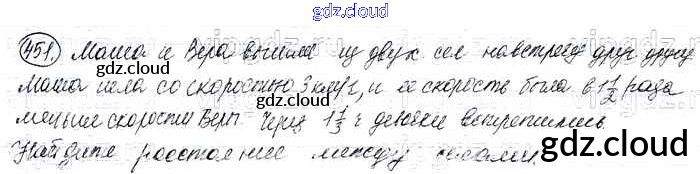 gdz.cloud
451. Маша и Вера вышли из двух сел навстречу друг другу
gdz.cloud
Маша шла со скоростью 3 км/ч, и ее скорость была в 1 1/2 раза
gdz.cloud
меньше скорости Веры. Через 1 1/3 ч девочки встретились.
gdz.cloud
Найдите расстояние между селами.
gdz.cloud